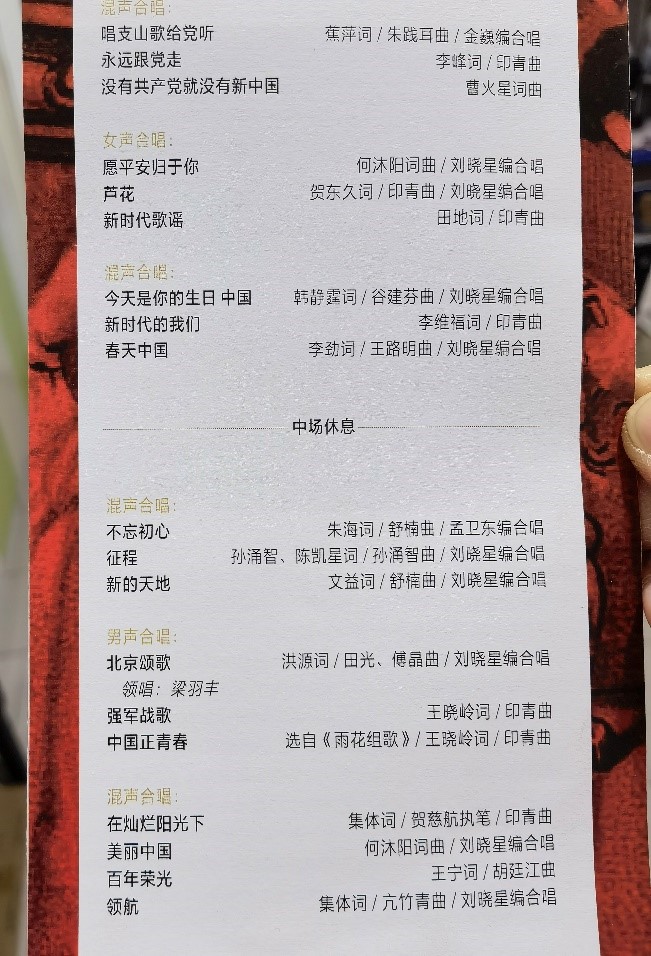 混声合唱:
唱支山歌给党听 蕉萍词 / 朱践耳曲 / 金巍编合唱
永远跟党走 李峰词 / 印青曲
没有共产党就没有新中国 曹火星词曲
女声合唱:
愿平安归于你 何沐阳词曲 / 刘晓星编合唱
芦花 贺东久词 / 印青曲 / 刘晓星编合唱
新时代歌谣 田地词 / 印青曲
混声合唱:
今天是你的生日 中国 韩静霆词 / 谷建芬曲 / 刘晓星编合唱
新时代的我们 李维福词 / 印青曲
春天中国 李劲词 / 王路明曲 / 刘晓星编合唱
中场休息
混声合唱:
不忘初心 朱海词 / 舒楠曲 / 孟卫东编合唱
征程 孙涌智、陈凯星词 / 孙涌智曲 / 刘晓星编合唱
新的天地 文益词 / 舒楠曲 / 刘晓星编合唱
男声合唱:
北京颂歌 洪源词 / 田光、傅晶曲 / 刘晓星编合唱
领唱：梁羽丰
强军战歌 王晓岭词 / 印青曲
中国正青春 选自《雨花组歌》/ 王晓岭词 / 印青曲
混声合唱:
在灿烂阳光下 集体词 / 贺慈航执笔 / 印青曲
美丽中国 何沐阳词曲 / 刘晓星编合唱
百年荣光 王宁词 / 胡廷江曲
领航 集体词 / 亢竹青曲 / 刘晓星编合唱